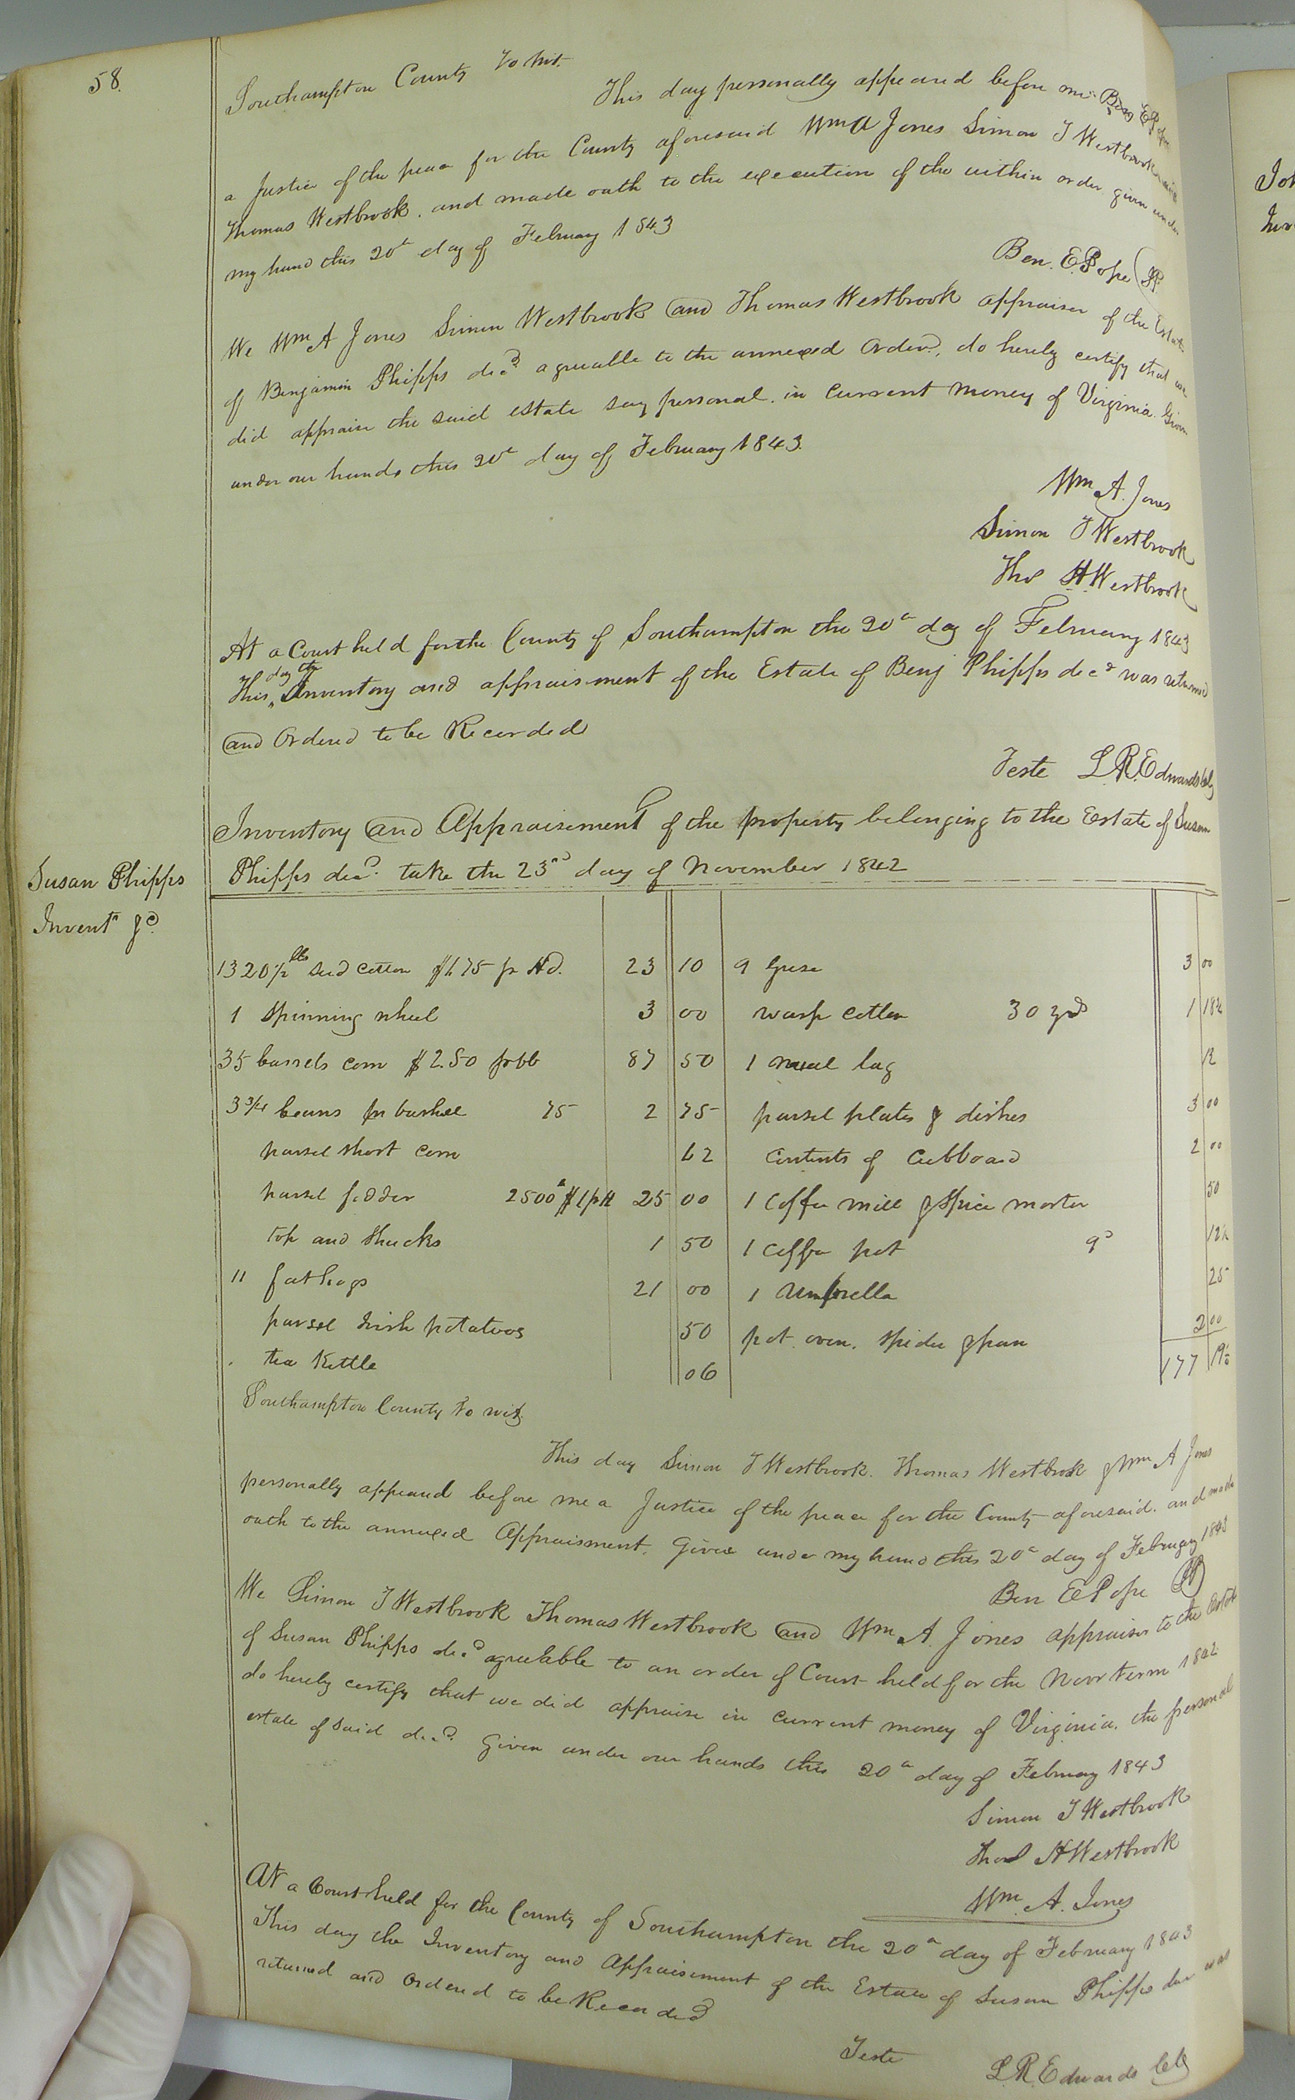 58.
Southampton County to wit.
This day personally appeared before me Ben E Pope
a Justice of the peace for the County aforesaid Wm A Jones Simon T Westbrook and
Thomas Westbrook. and made oath to the execution of the within order given under
my hand this 20th day of February 1843
Ben. E. Pope JP
We Wm A Jones Simon Westbrook and Thomas Westbrook appraiser of the Estate
of Benjamin Phipps decd agreeable to the annexed Order, do hereby certify that we
did appraise the said estate say personal. in Current Money of Virginia. Given
under our hands this 20th day of February 1843.
Wm A. Jones
Simon T Westbrook
Thos H. Westbrook
At a Court held for the County of Southampton the 20th day of February 1843
This day the Inventory and appraisement of the Estate of Benj Phipps decd was returned
and Ordered to be Recorded
Teste L. R. Edwards Clk
Inventory and Appraisement of the property belonging to the Estate of Susan
Phipps decd. take the 23rd day of November 1842
Susan Phipps
Invent &c
1320 1/2 lbs seed cotton $1.75 pr Hd. 23 10
9 Geese 3 00
1 Spinning wheel 3 00
warp cotton 30 yds 1 18 3/4
35 barrels corn $2.50 pr bb 87 50
1 meal bag 12
3 3/4 beans pr bushel 75 2 75
parsel plates & dishes 3 00
parsel short corn 62
Contents of Cubboard 2 00
parsel fodder 2500 $1 pH 25 00
1 Coffee mill & Spice morter 50
Top and Shucks 1 50
1 Coffee pot 12 1/2
11 fat hogs 21 00
1 Umbrella 25
parsel Irish potatoes 50
pot. oven. Spider & pan 2 00
tea Kettle 06
177 19
Southampton County to wit.
This day Simon T Westbrook. Thomas Westbrook & Wm A Jones
personally appeared before me a Justice of the peace for the County aforesaid. and made
oath to the annexed Appraisment. Given under my hand this 20th day of February 1843
Ben E Pope JP
We Simon T Westbrook Thomas Westbrook and Wm. A. Jones appraiser to the Estate
of Susan Phipps decd agreeable to an order of Court held for the Novr term 1842
do hereby certify that we did appraise in Current money of Virginia. the personal
estate of said decd. Given under our hands this 20th day of February 1843
Simon T Westbrook
Thos H Westbrook
Wm. A. Jones
At a Court held for the County of Southampton the 20th day of February 1843
This day the Inventory and Appraisement of the Estate of Susan Phipps decd was
returned and Ordered to be Recorded
Teste L. R. Edwards Clk